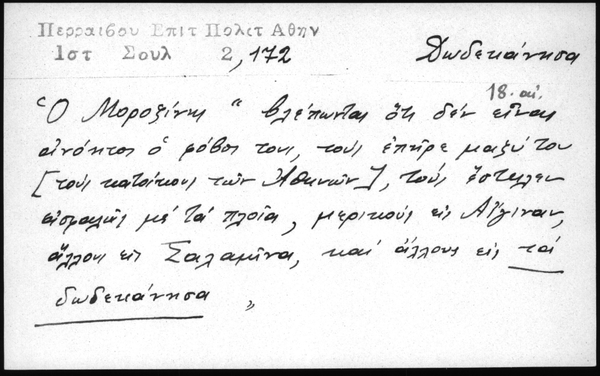 Περραιβου Επιτ Πολιτ Αθην
Ιστ Σουλ 2,172
Δωδεκάνησα
18. αἰ.
Ὁ Μοροζίνης " βλέπωντας ὅτι δέν εἶναι
ἀνόητος ὁ φόβος τους, τούς ἐπῆρε μαζύ του
[τούς κατοίκους τῶν Ἀθηνῶν], τούς ἔστειλεν
μέ τά πλοῖα, μερικούς εἰς Αἴγιναν,
ἄλλους εἰς Σαλαμῖνα, καί ἄλλους εἰς τά
δωδεκάνησα "